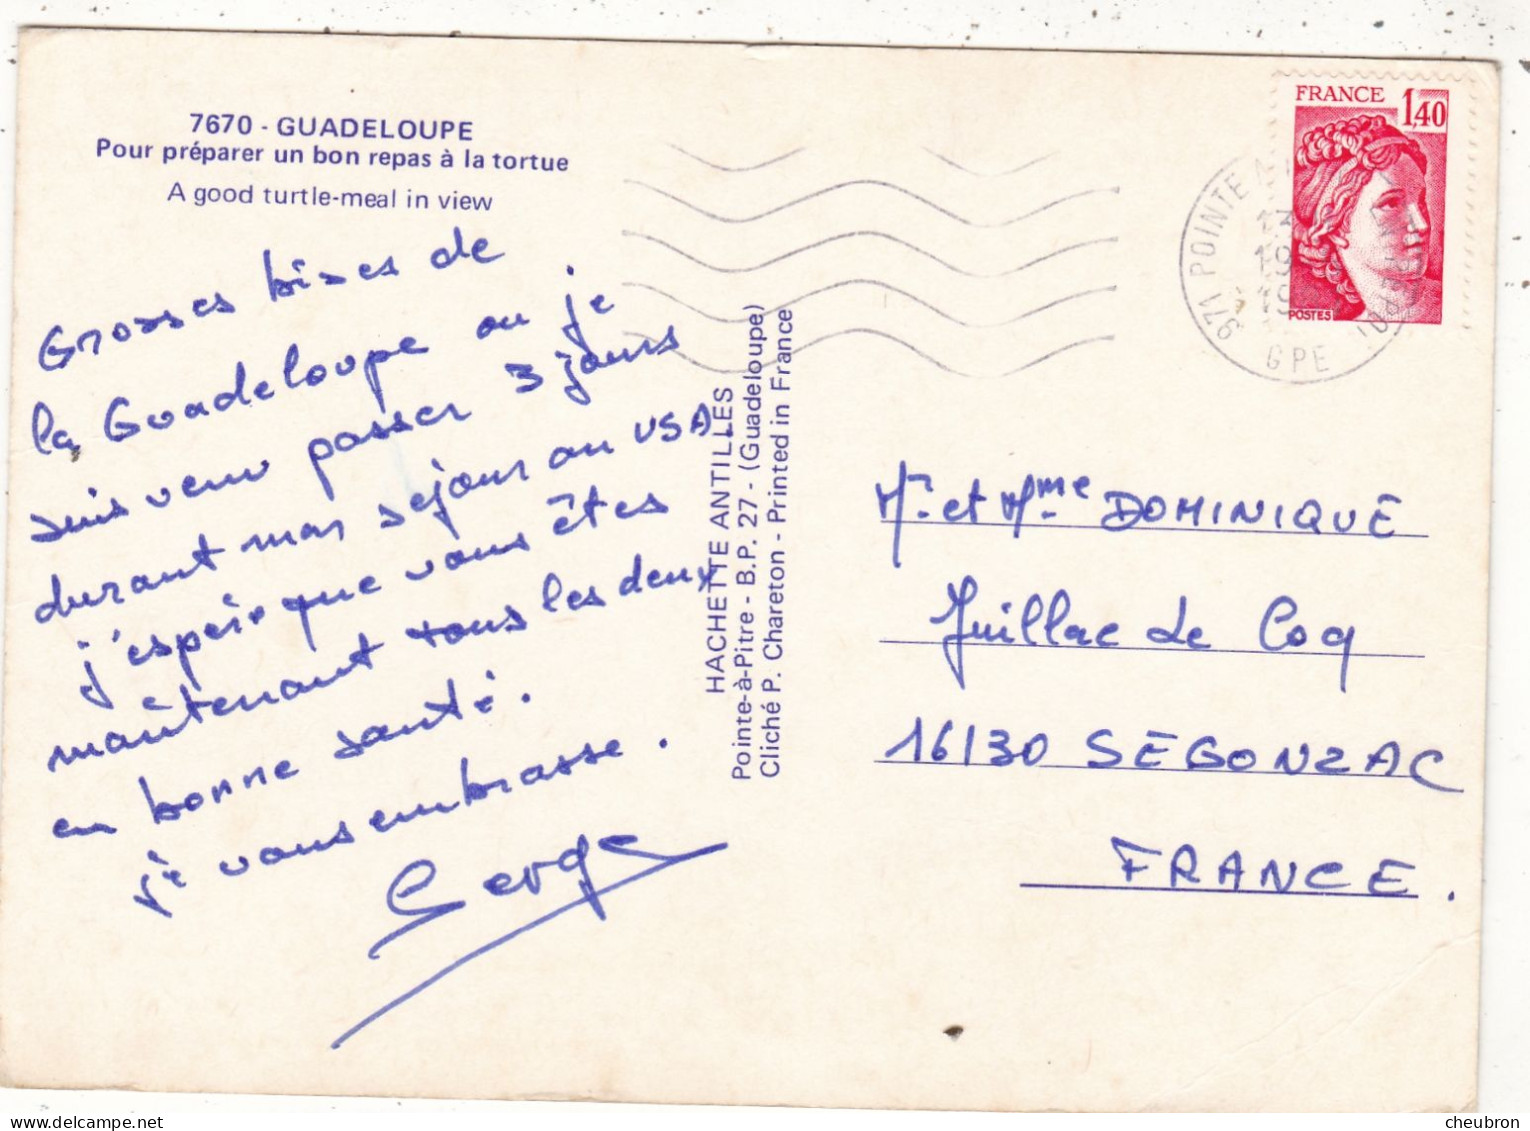 7670 - GUADELOUPE
Pour préparer un bon repas à la tortue
A good turtle-meal in view
Grosses bises de
la Guadeloupe ou je
suis venu passer 3 jours
durant mon sejour au USA.
j'espère que vous êtes
maintenant tous les deux
en bonne santé.
je vous embrasse.
Serge
HACHETTE ANTILLES
Pointe-à-Pitre - B.P. 27 - (Guadeloupe)
Cliché P. Chareton - Printed in France
FRANCE 1,40
POSTES
971 POINTE A
13
19
19
GPE
Mr et Mme DOMINIQUE
Juillac Le Coq
16130 SEGONZAC
FRANCE.
cheubron